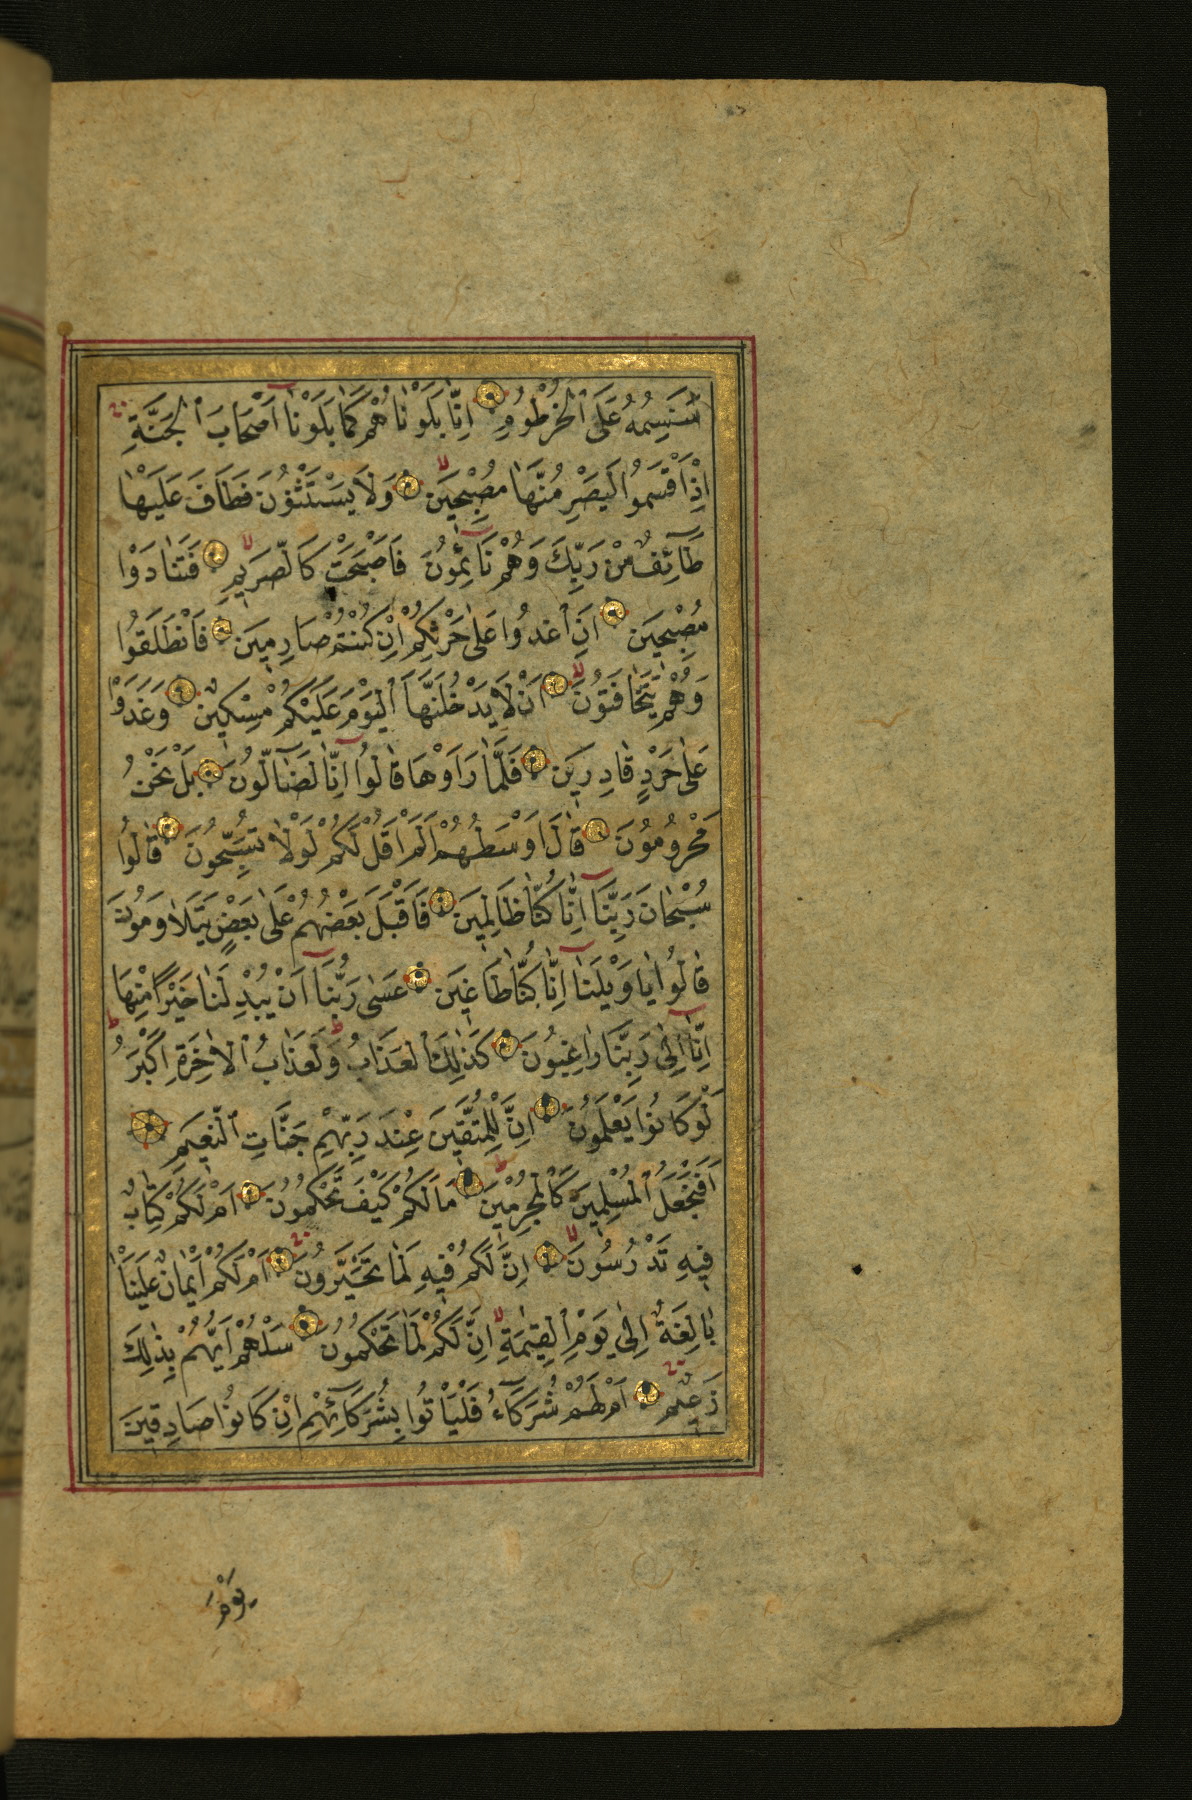 سَنَسِمُهُ عَلَى ٱلْخُرْطُومِ اِنَّا بَلَوْنَاهُمْ كَمَا بَلَوْنَا اَصْحَابَ ٱلْجَنَّةِ
اِذْ اَقْسَمُوا لَيَصْرِمُنَّهَا مُصْبِحِينَ وَلَا يَسْتَثْنُونَ فَطَافَ عَلَيْهَا
طَآئِفٌ مِنْ رَبِّكَ وَهُمْ نَآئِمُونَ فَاَصْبَحَتْ كَالصَّرِيمِ فَتَنَادَوْا
مُصْبِحِينَ اَنِ ٱغْدُوا عَلٰى حَرْثِكُمْ اِنْ كُنْتُمْ صَارِمِينَ فَانْطَلَقُوا
وَهُمْ يَتَخَافَتُونَ اَنْ لَا يَدْخُلَنَّهَا ٱلْيَوْمَ عَلَيْكُمْ مِسْكِينٌ وَغَدَوْا
عَلٰى حَرْدٍ قَادِرِينَ فَلَمَّا رَاَوْهَا قَالُوا اِنَّا لَضَآلُّونَ بَلْ نَحْنُ
مَحْرُومُونَ قَالَ اَوْسَطُهُمْ اَلَمْ اَقُلْ لَكُمْ لَوْلَا تُسَبِّحُونَ قَالُوا
سُبْحَانَ رَبِّنَآ اِنَّا كُنَّا ظَالِمِينَ فَاَقْبَلَ بَعْضُهُمْ عَلٰى بَعْضٍ يَتَلَاوَمُونَ
قَالُوا يَا وَيْلَنَآ اِنَّا كُنَّا طَاغِينَ عَسٰى رَبُّنَآ اَنْ يُبْدِلَنَا خَيْرًا مِنْهَا
اِنَّآ اِلٰى رَبِّنَا رَاغِبُونَ كَذٰلِكَ ٱلْعَذَابُ وَلَعَذَابُ ٱلْاٰخِرَةِ اَكْبَرُ
لَوْ كَانُوا يَعْلَمُونَ اِنَّ لِلْمُتَّقِينَ عِنْدَ رَبِّهِمْ جَنَّاتِ ٱلنَّعِيمِ
اَفَنَجْعَلُ ٱلْمُسْلِمِينَ كَالْمُجْرِمِينَ مَا لَكُمْ كَيْفَ تَحْكُمُونَ اَمْ لَكُمْ كِتَابٌ
فِيهِ تَدْرُسُونَ اِنَّ لَكُمْ فِيهِ لَمَا تَخَيَّرُونَ اَمْ لَكُمْ اَيْمَانٌ عَلَيْنَا
بَالِغَةٌ اِلٰى يَوْمِ ٱلْقِيٰمَةِ اِنَّ لَكُمْ لَمَا تَحْكُمُونَ سَلْهُمْ اَيُّهُمْ بِذٰلِكَ
زَعِيمٌ اَمْ لَهُمْ شُرَكَآءُ فَلْيَأْتُوا بِشُرَكَآئِهِمْ اِنْ كَانُوا صَادِقِينَ
يَوْمَ